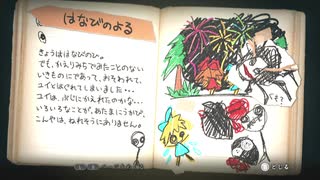 はなびのよる
きょうははなびのひ。
でも、かえりみちでみたことのない
いきものにであって、おそわれて、
ユイとはぐれてしまいました・・・
ユイは、ぶじにかえれたのかな・・・
いろいろなことが、あたまにうかび、
こんやは、ねれそうにありません。
も?
とじる